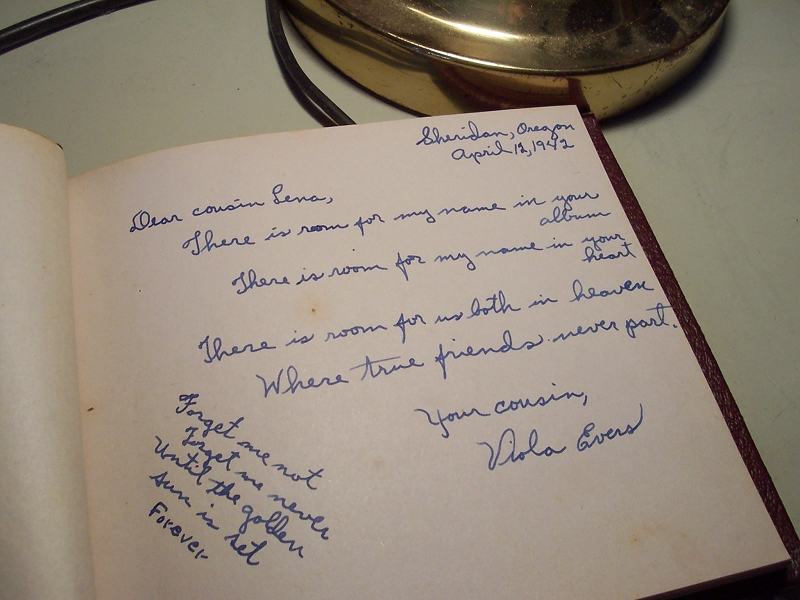 Sheridan, Oregon
April 12, 1942
Dear cousin Lena,
There is room for my name in your
album
There is room for my name in your
heart
There is room for us both in heaven
Where true friends never part.
Your cousin,
Viola Evers
Forget me not
Forget me never
Until the golden
sun is set
Forever